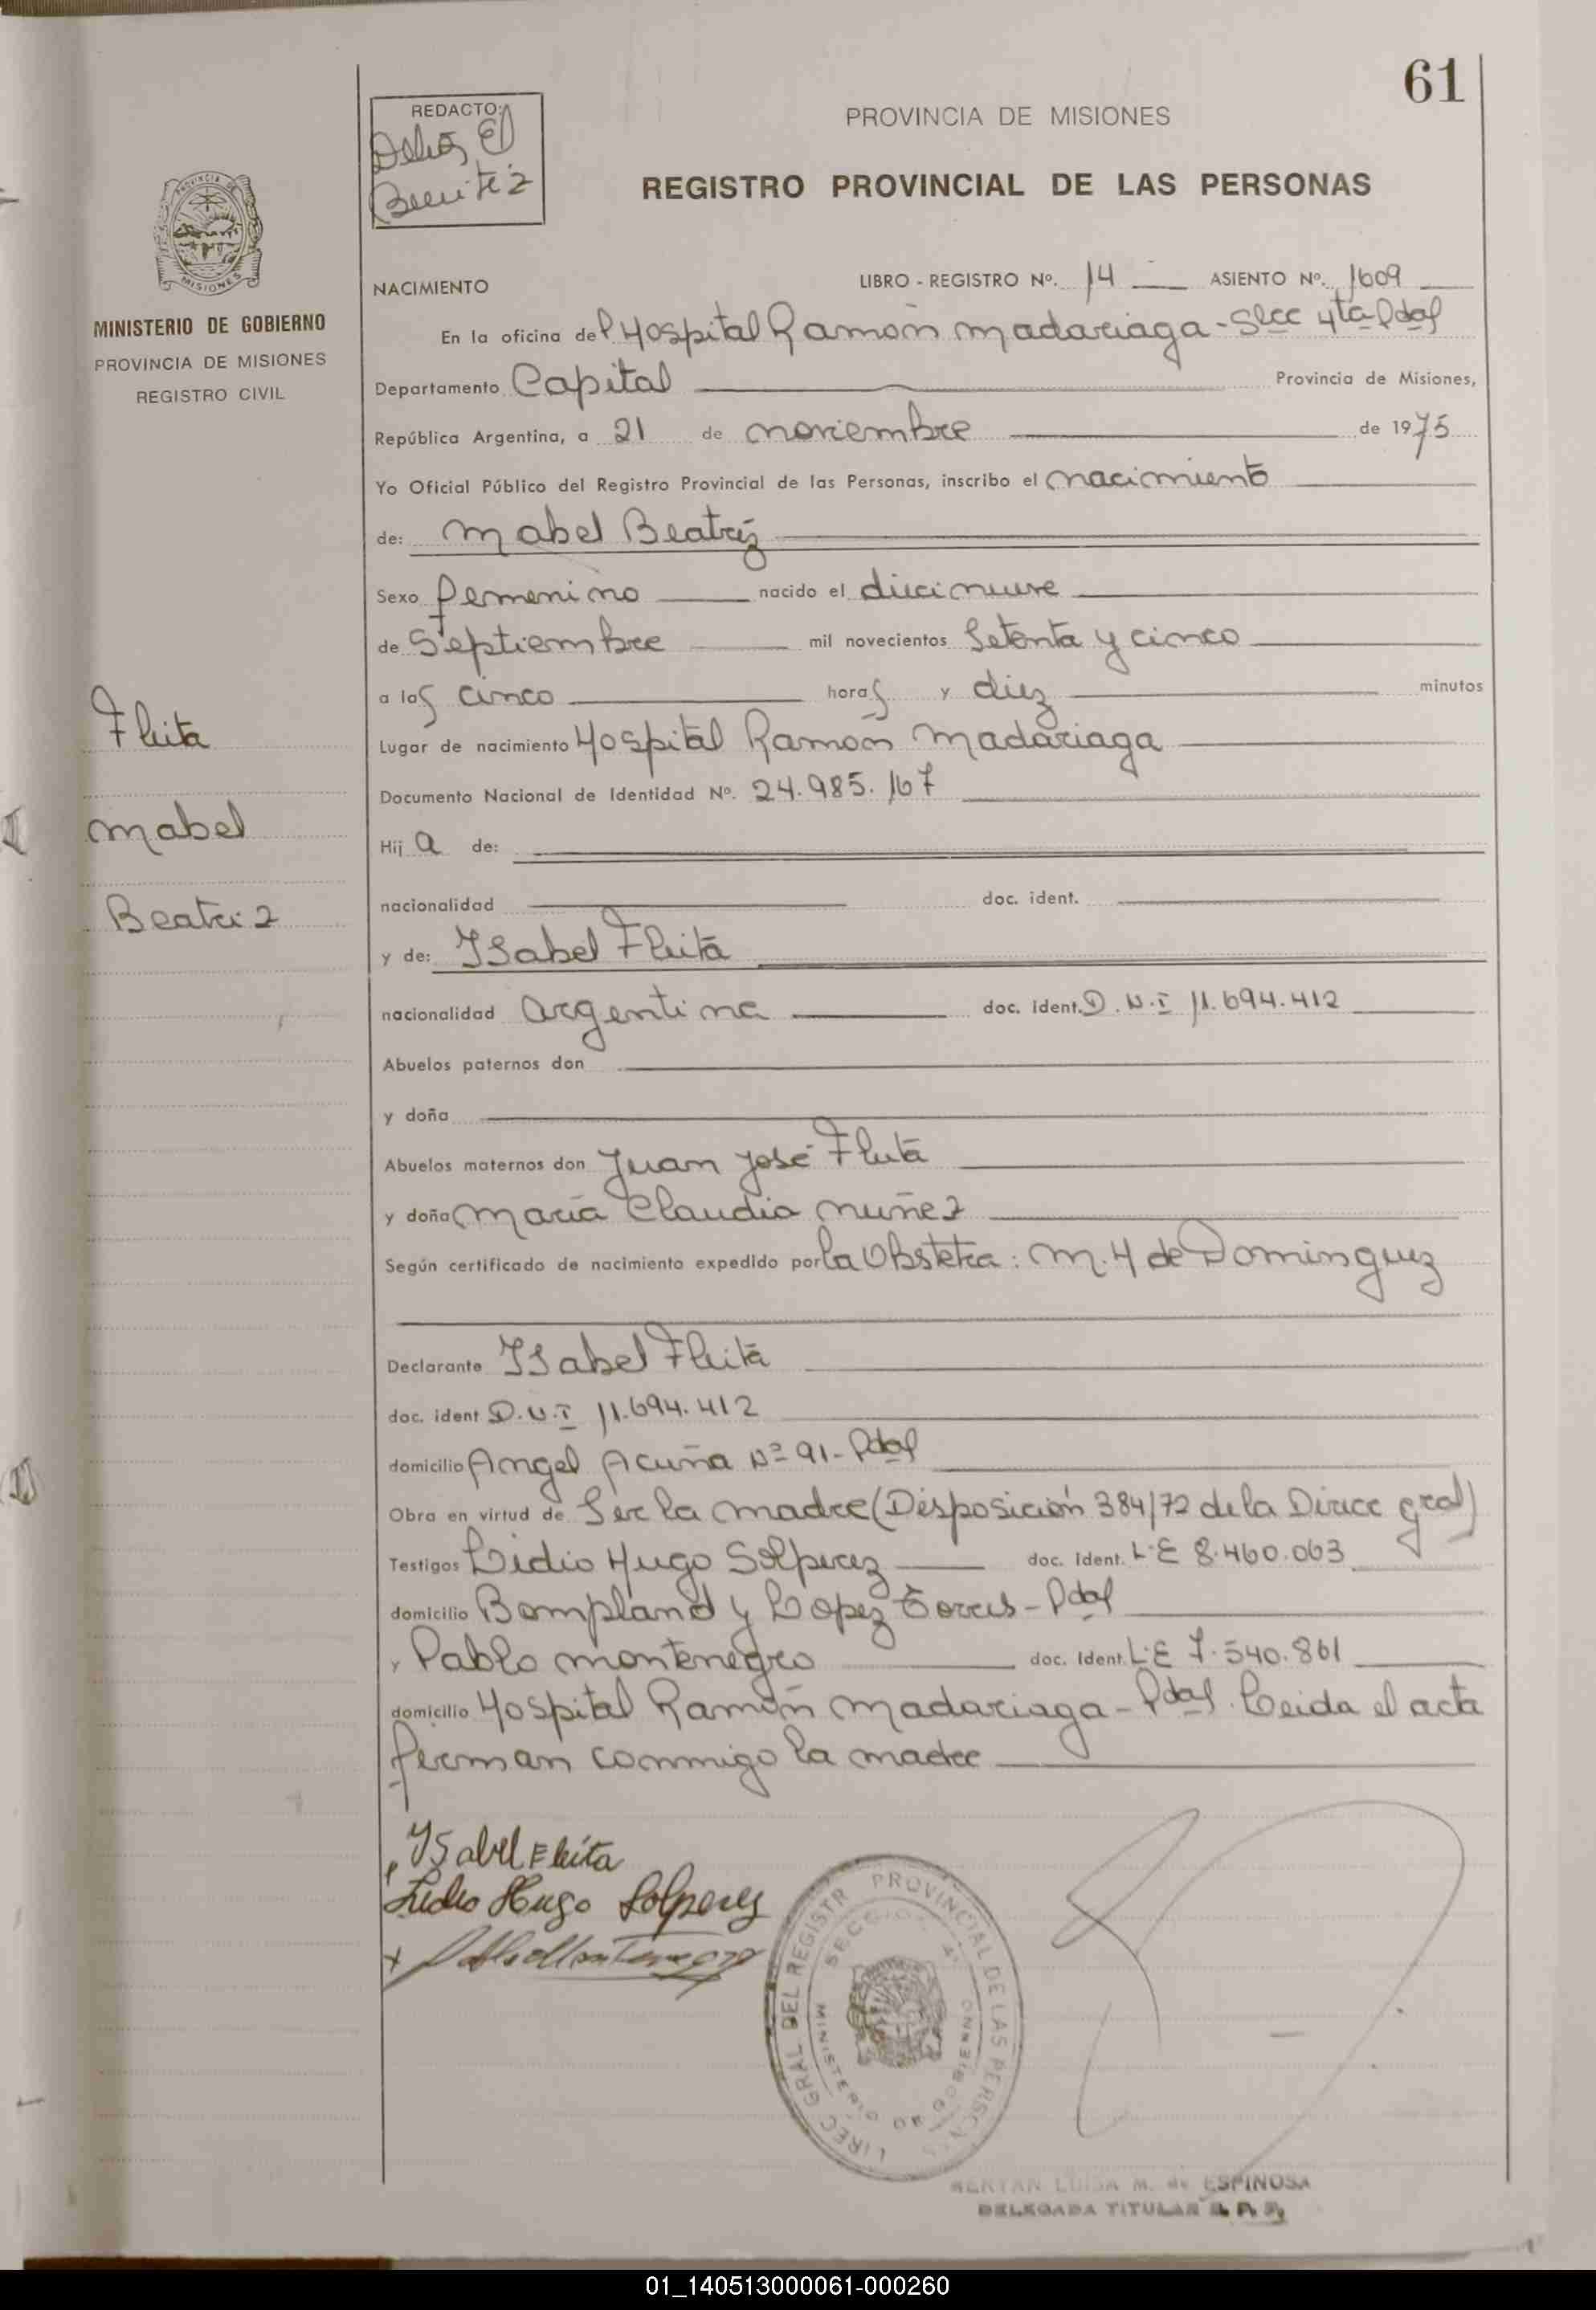 61
REDACTO:
Benitez
PROVINCIA DE MISIONES
REGISTRO PROVINCIAL DE LAS PERSONAS
MISIONES
MINISTERIO DE GOBIERNO
PROVINCIA DE MISIONES
REGISTRO CIVIL
Fleita
Mabel
Beatriz
NACIMIENTO LIBRO - REGISTRO Nº. 14 ASIENTO Nº. 1609
En la oficina del Hospital Ramón Madariaga - Secc 4ta Pdas
Departamento Capital Provincia de Misiones,
República Argentina, a 21 de noviembre de 1975
Yo Oficial Público del Registro Provincial de las Personas, inscribo el nacimiento
de: Mabel Beatriz
Sexo femenino nacido el diecinueve
de Septiembre mil novecientos Setenta y cinco
a las cinco horas y diez minutos
Lugar de nacimiento Hospital Ramón Madariaga
Documento Nacional de Identidad Nº. 24.985.167
Hij a de:
nacionalidad doc. ident.
y de: Ysabel Fleita
nacionalidad Argentina doc. ident. D.N.I 11.694.412
Abuelos paternos don
y doña
Abuelos maternos don Juan José Fleita
y doña María Claudia Nuñez
Según certificado de nacimiento expedido por la Obstetra: M. H de Dominguez
Declarante Ysabel Fleita
doc. ident D.N.I 11.694.412
domicilio Angel Acuña Nº 91 - Pdas
Obra en virtud de Ser la madre (Disposición 384/72 de la Direcc gral)
Testigos Lidio Hugo Solperez doc. ident. L.E 8.460.063
domicilio Bompland y Lopez Torres - Pdas
y Pablo Montenegro doc. ident. L.E 7.540.861
domicilio Hospital Ramón Madariaga - Pdas. Leida el acta
firman conmigo la madre
Ysabel Fleita
Lidio Hugo Solperez
Pablo Montenegro
DIREC GRAL DEL REGISTR PROVINCIAL DE LAS PERSONAS
SECCION 4ª
MINISTERIO DE GOBIERNO
LUISA M. de ESPINOSA
DELEGADA TITULAR R. P. P.
01_140513000061-000260